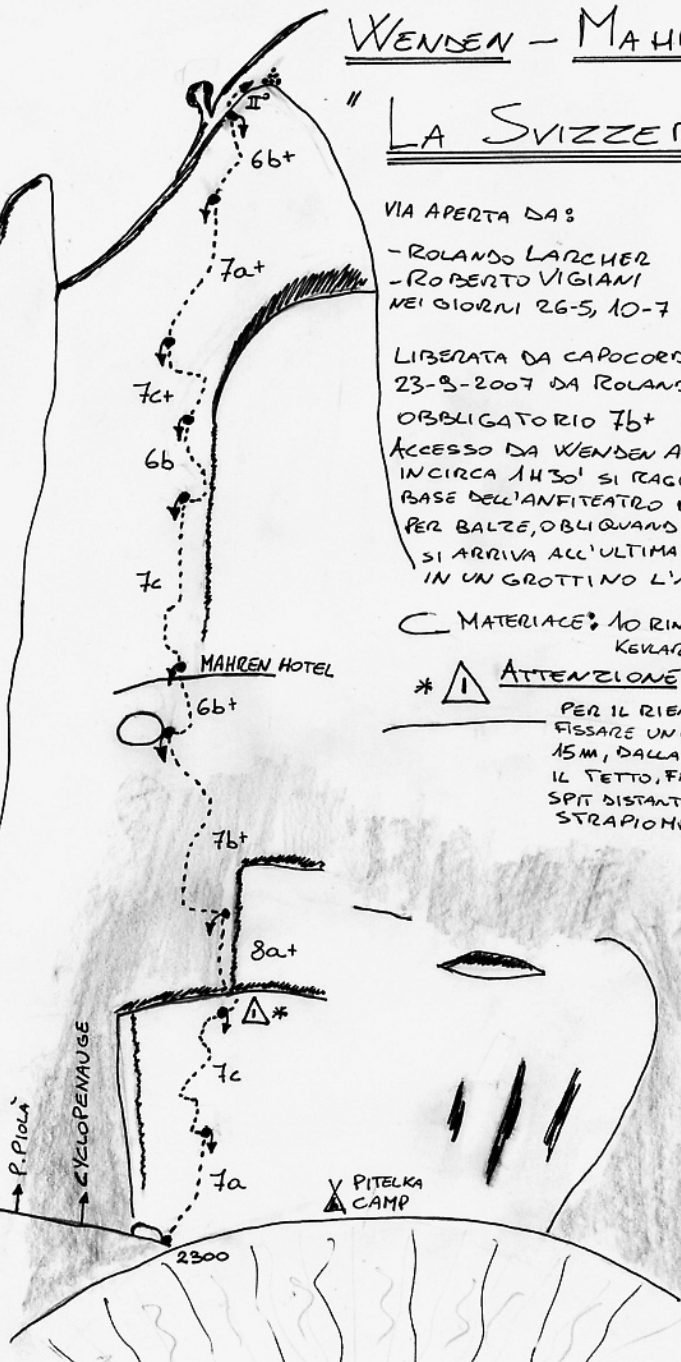 WENDEN – MAH
" LA SVIZZE
VIA APERTA DA:
- ROLANDO LARCHER
- ROBERTO VIGIANI
NEI GIORNI 26-5, 10-7
LIBERATA DA CAPOCORD
23-9-2007 DA ROLAN
OBBLIGATORIO 7b+
ACCESSO DA WENDEN A
IN CIRCA 1H30' SI RAG
BASE DELL'ANFITEATRO
PER BALZE, OBLIQUAND
SI ARRIVA ALL'ULTIMA
IN UN GROTTINO L'
MATERIALE: 10 RIN
KEVLAR
* ! ATTENZIONE
PER IL RIE
FISSARE UN
15M, DALLA
IL TETTO, F
SPIT DISTANT
STRAPIOM
II°
6b+
7a+
7c+
6b
7c
MAHREN HOTEL
6b+
7b+
8a+
! *
7c
7a
PITELKA
CAMP
2300
P. PIOLÀ
CYCLOPENAUGE